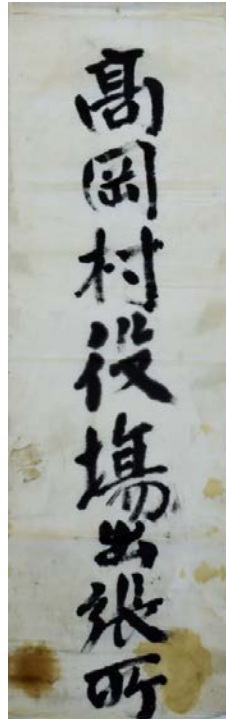 髙岡村役塲出張所